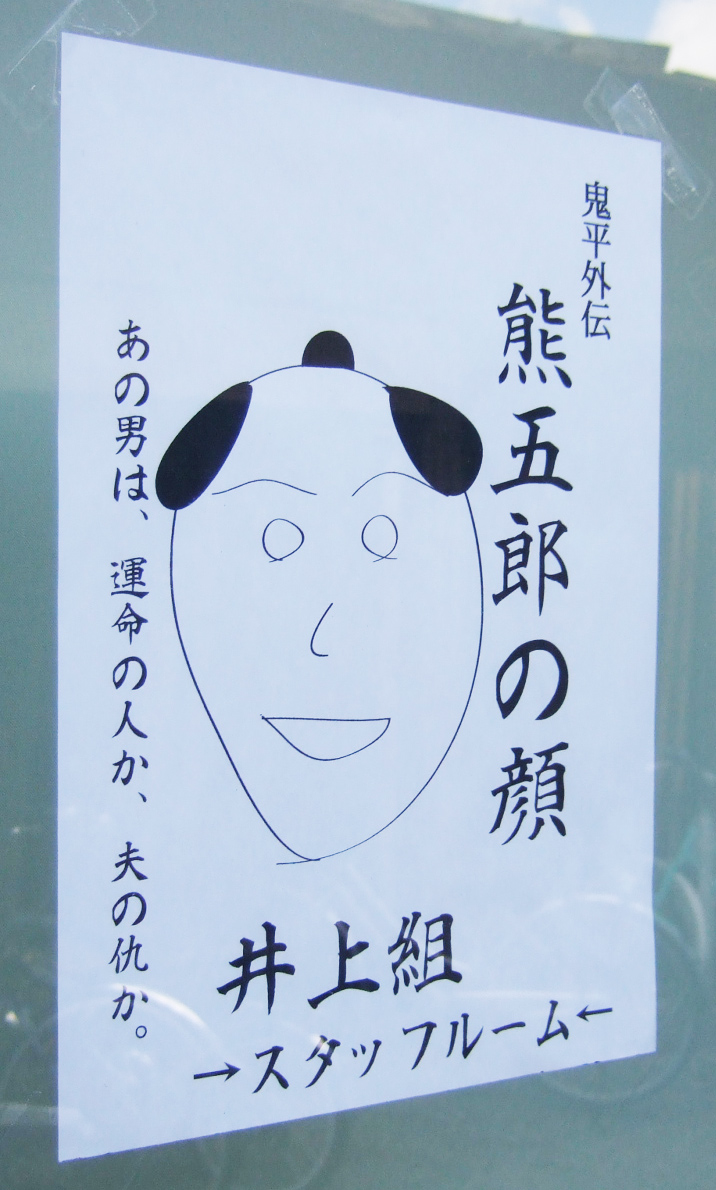 鬼平外伝
熊五郎の顔
あの男は、運命の人か、夫の仇か。
井上組
→スタッフルーム←